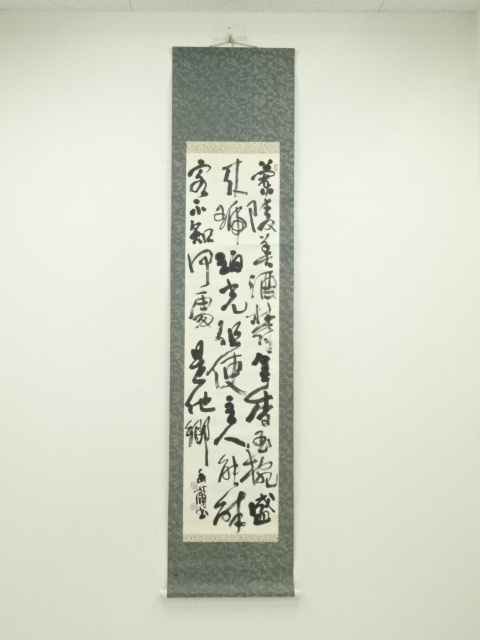 蘭陵美酒鬱金香玉椀盛
来琥珀光但使主人能酔
客不知何處是他郷